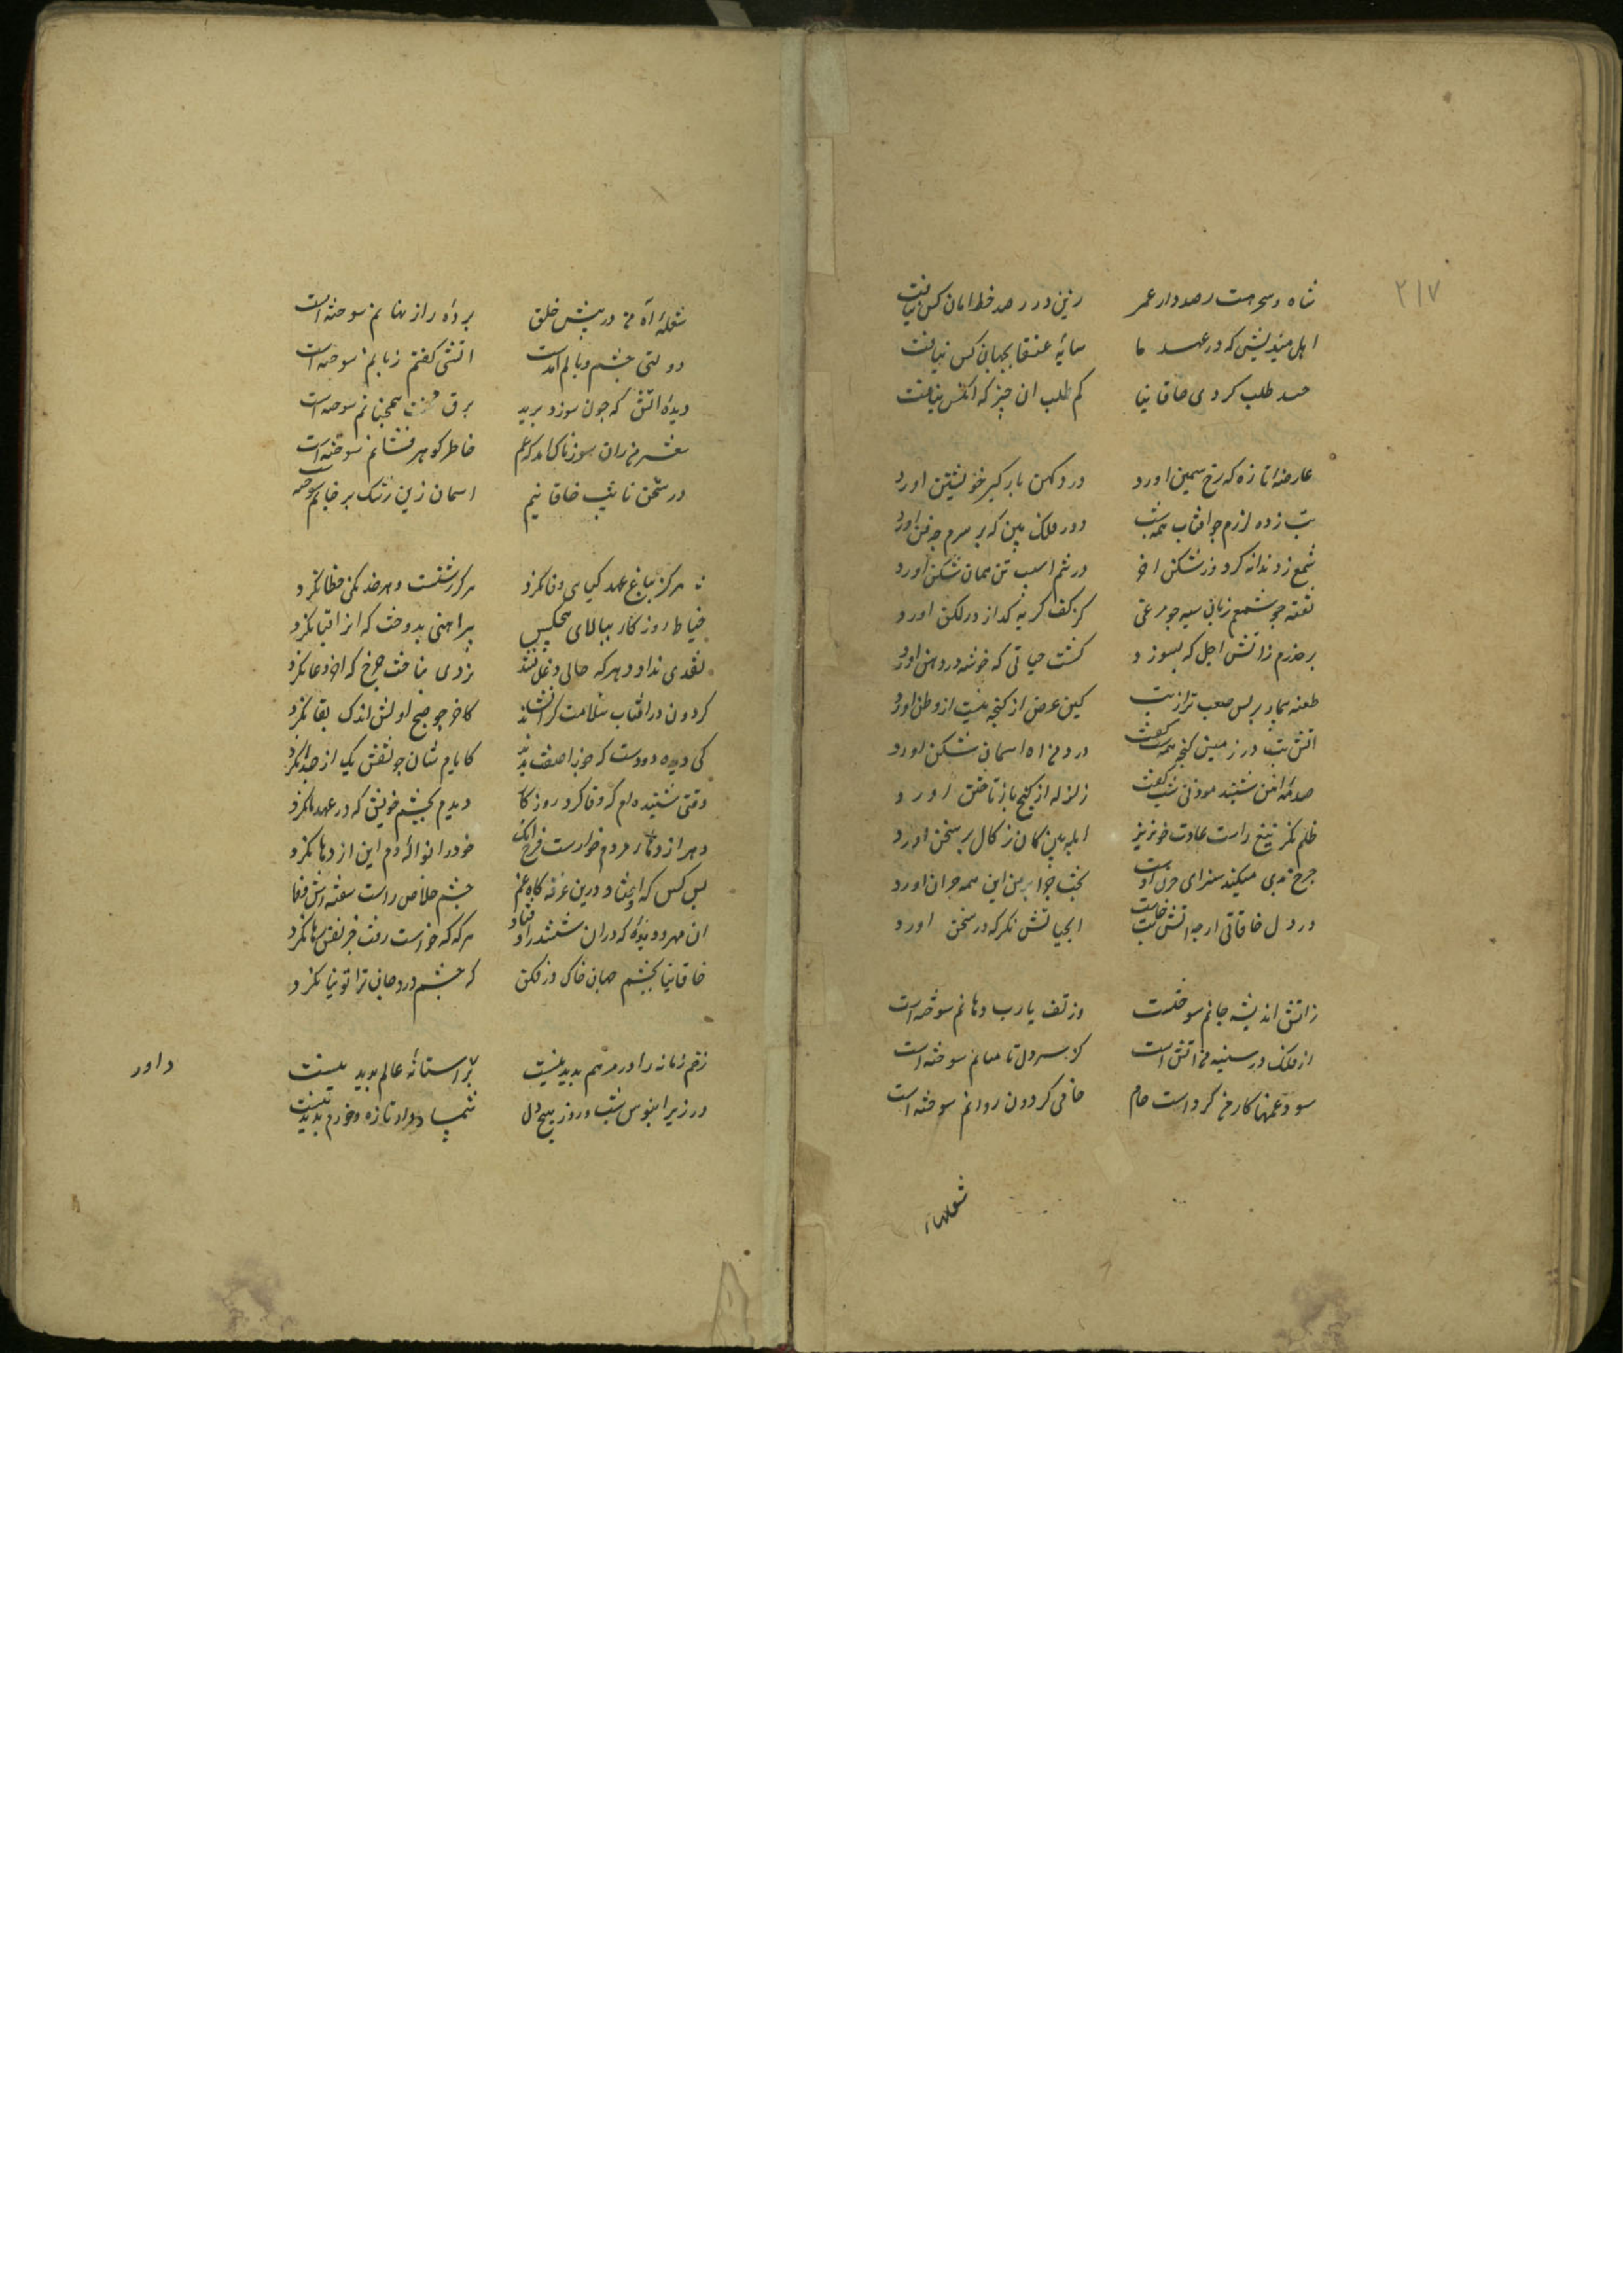 ۲۱۷
شاه و رصددار عمر زین در رصد خط امان کس نیافت
اهل میندیش که در عهد ما سایه عنقا بجهان کس نیافت
طلب کردی خاقانیا کم طلب ان چیز که انکس نیافت
عارضه تازه که رخ سمین اورد درد کهن بابر کیر خویشتن اورد
تب زده لرزم جو افتاب همه شب دور فلک بین که بر سرم چه فتن اورد
شمع زد ندانه کرد در شکن اخر در تنم اسیب تن همان شکن اورد
نفته جو شمعم زبان سیه جو مرغی کز کف کریه کداز در لکن اورد
بر حذرم زاتش اجل که بسوزد کشت حیاتی که خوشه در دهن اورد
طعنه بیمار پرس صعب تر از تب کین عرض از کنجه نیست از وطن اورد
اتش تب در زمین کنجه کفت درد من اه اسمان شکن اورد
صدمه اه من شنید موذن شب کفت زلزله از کنج باز تاختن اورد
ظلم نکر تیغ راست عادت خونریز ابله بین کان ز کال بر سخن اورد
چرخ بدی میکند سزای حزن اوست بخت چرا بر من این همه حزن اورد
در دل خاقانی ارچه اتش تب خاست ابحیاتش نکر که در سخن اورد
زاتش اندیشه جانم سوخته است وز تف یارب دهانم سوخته است
از فلک در سینه من اتش است کز سر دل تا میانم سوخته است
سود غمها کار من کرد است خام خامی کردون روانم سوخته است
شعلهاء
شعله اه من در پیش خلق پرده راز نهانم سوخته است
دولتی جستم وبالم امدست اتشی کفتم زبانم سوخته است
دیده اتش که چون سوزد پرند برق محنت همچنانم سوخته است
شعر من زان سوزناک امد که غم خاطر کوهر فشانم سوخته است
در سخن نایب خاقانیم اسمان زین رشک بر خانم سوخته
هرکز بباغ عهد کیای وفا نکرد هرکز ز شست دهر خدنکی خطا نکرد
خیاط روزکار ببالای هیچکس پیراهنی بدوخت که انرا قبا نکرد
نقدی نداد دهر که حالی دغل نشد نردی نباخت چرخ که اخر دغا نکرد
کردون در افتاب سلامت کرا نشاند کاخر چو صبح اولش اندک بقا نکرد
کی دیده دو دوست که جوزا صفت بدند کایام شان چو نعش یک از هم جدا نکرد
وقتی شنیده ام که وفا کرد روزکار دیدم بچشم خویش که در عهد ما نکرد
دهر اژدهای مردم خوارست فرخ انک خود را نواله دم این اژدها نکرد
بس کس که اوفتاد درین غرقه کاه غم چشم خلاص داشت سفینه اش وفا نکرد
ان مهره دیده که دران ششدر اوفتاد هرکه که خواست رفت حریفش رها نکرد
خاقانیا بچشم جهان خاک در فکن که چشم درد جان ترا توتیا نکرد
زخم زمانه را در مرهم پدید نیست بر استانه عالم پدید نیست
در زیر ابنوس شب و روز هیچ دل شمشاد وار تازه و خرم پدید نیست
داور